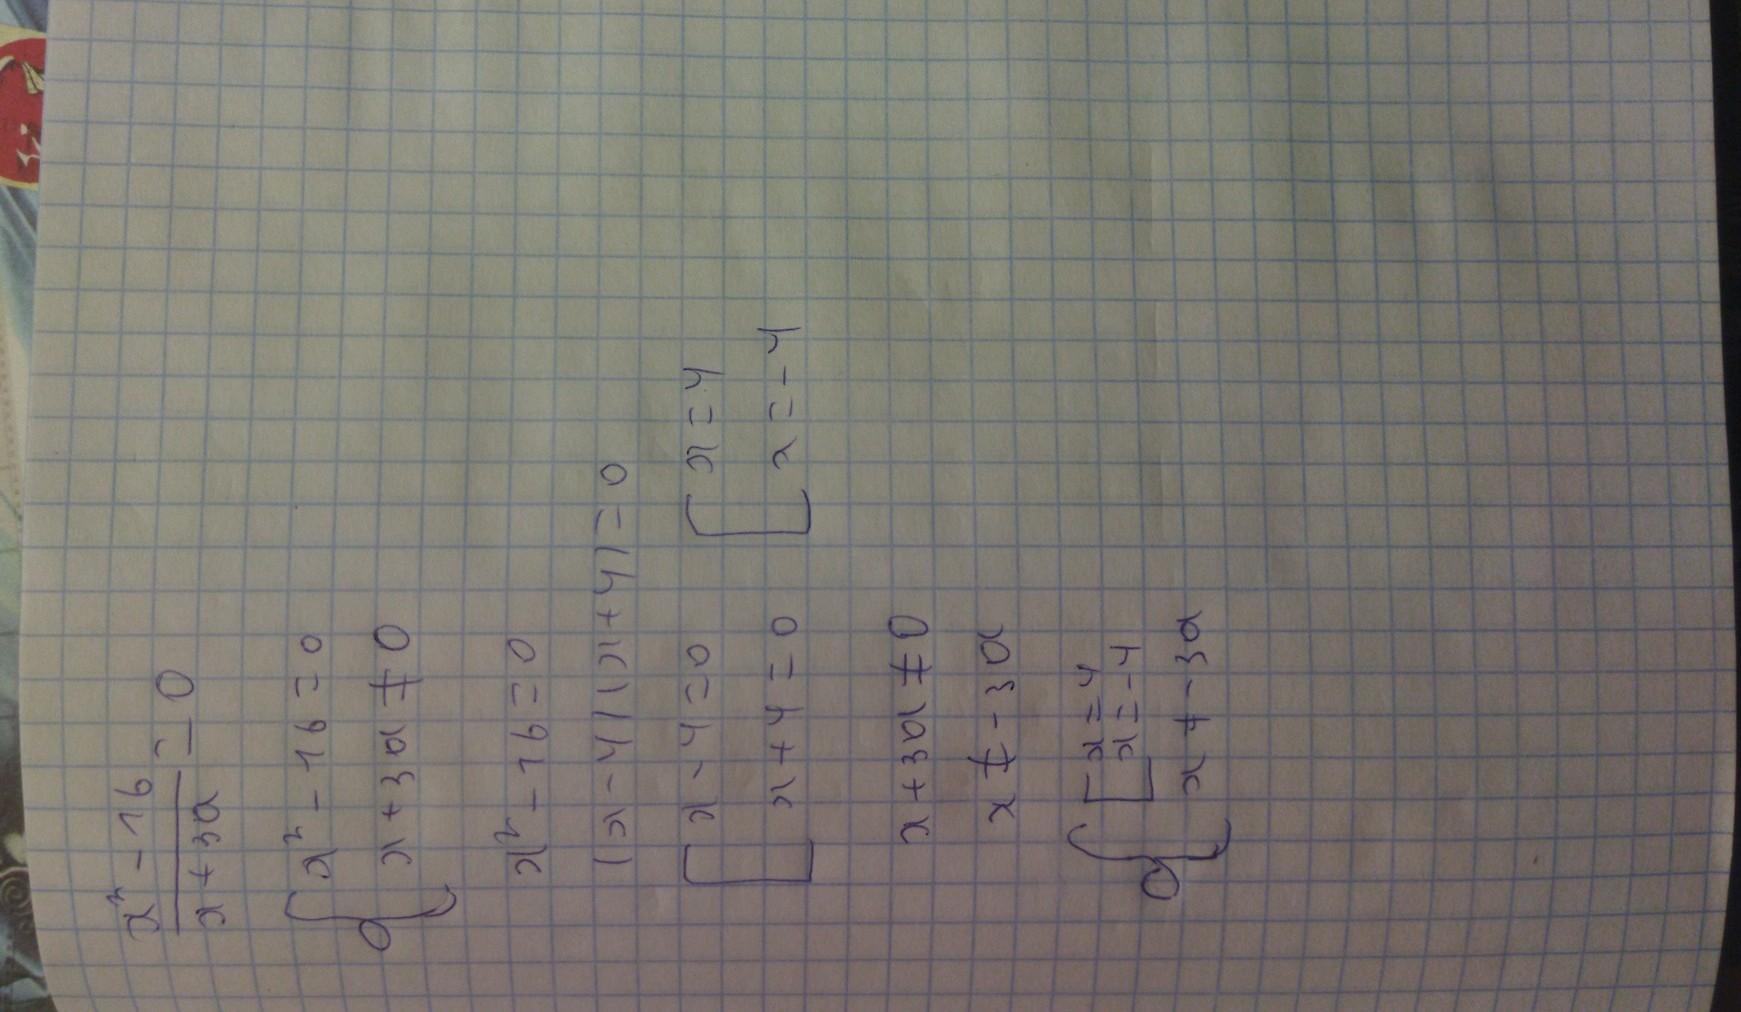 x² - 16
x + 3a = 0
{ x² - 16 = 0
x + 3a ≠ 0
x² - 16 = 0
(x - 4)(x + 4) = 0
[ x - 4 = 0 [ x = 4
x + 4 = 0 x = -4
x + 3a ≠ 0
x ≠ -3a
{ [ x = 4
x = -4
x ≠ -3a